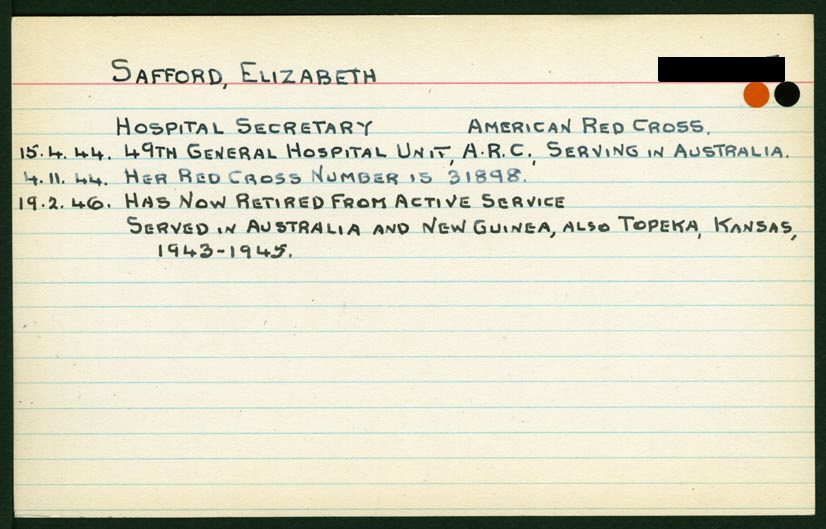 SAFFORD, ELIZABETH
HOSPITAL SECRETARY AMERICAN RED CROSS.
15.4.44. 49TH GENERAL HOSPITAL UNIT, A.R.C., SERVING IN AUSTRALIA.
4.11.44. HER RED CROSS NUMBER IS 31898.
19.2.46. HAS NOW RETIRED FROM ACTIVE SERVICE
SERVED IN AUSTRALIA AND NEW GUINEA, ALSO TOPEKA, KANSAS,
1943-1945.